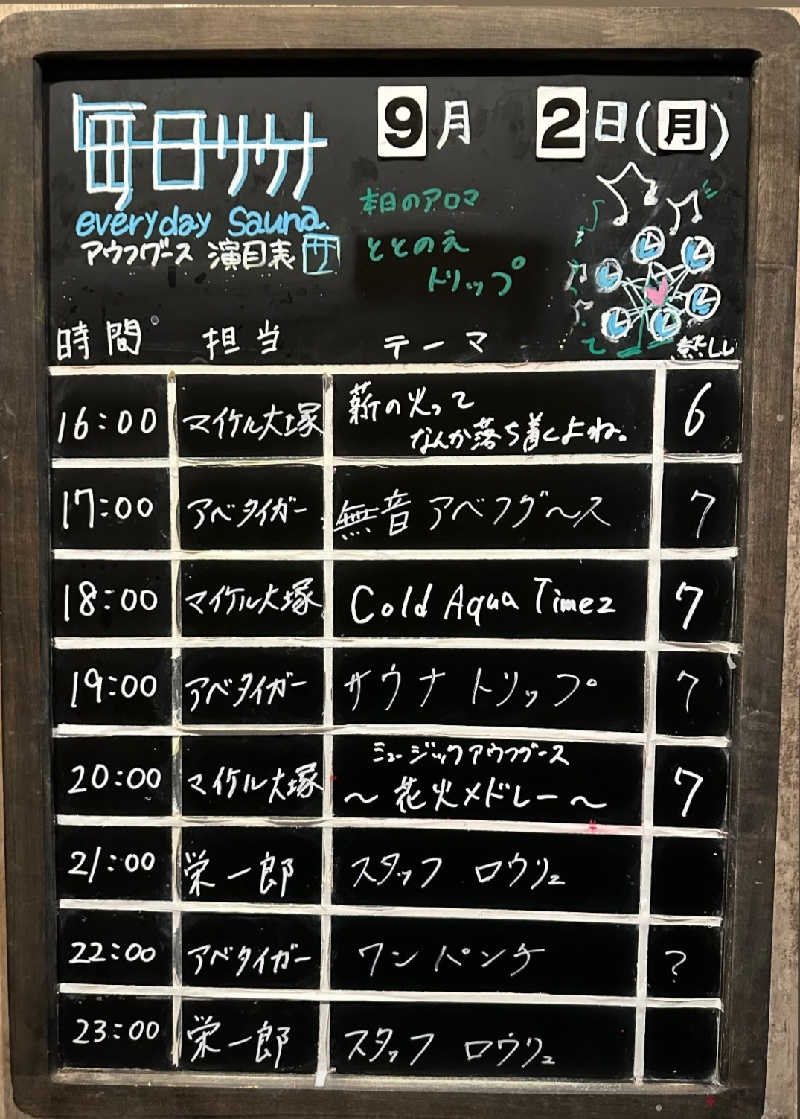 毎日サウナ
everyday Sauna.
アウフグース 演目表 サ
9月 2日(月)
本日のアロマ
ととのえ
トリップ
時間 担当 テーマ 熱しし
16:00 マイケル大塚 薪の火って
なんか落ち着くよね。 6
17:00 アベタイガー 無音 アベフグ〜ス 7
18:00 マイケル大塚 Cold Aqua Timez 7
19:00 アベタイガー サウナ トリップ 7
20:00 マイケル大塚 ミュージックアウフグース
〜花火メドレー〜 7
21:00 栄一郎 スタッフ ロウリュ
22:00 アベタイガー ワンパンケ ?
23:00 栄一郎 スタッフ ロウリュ